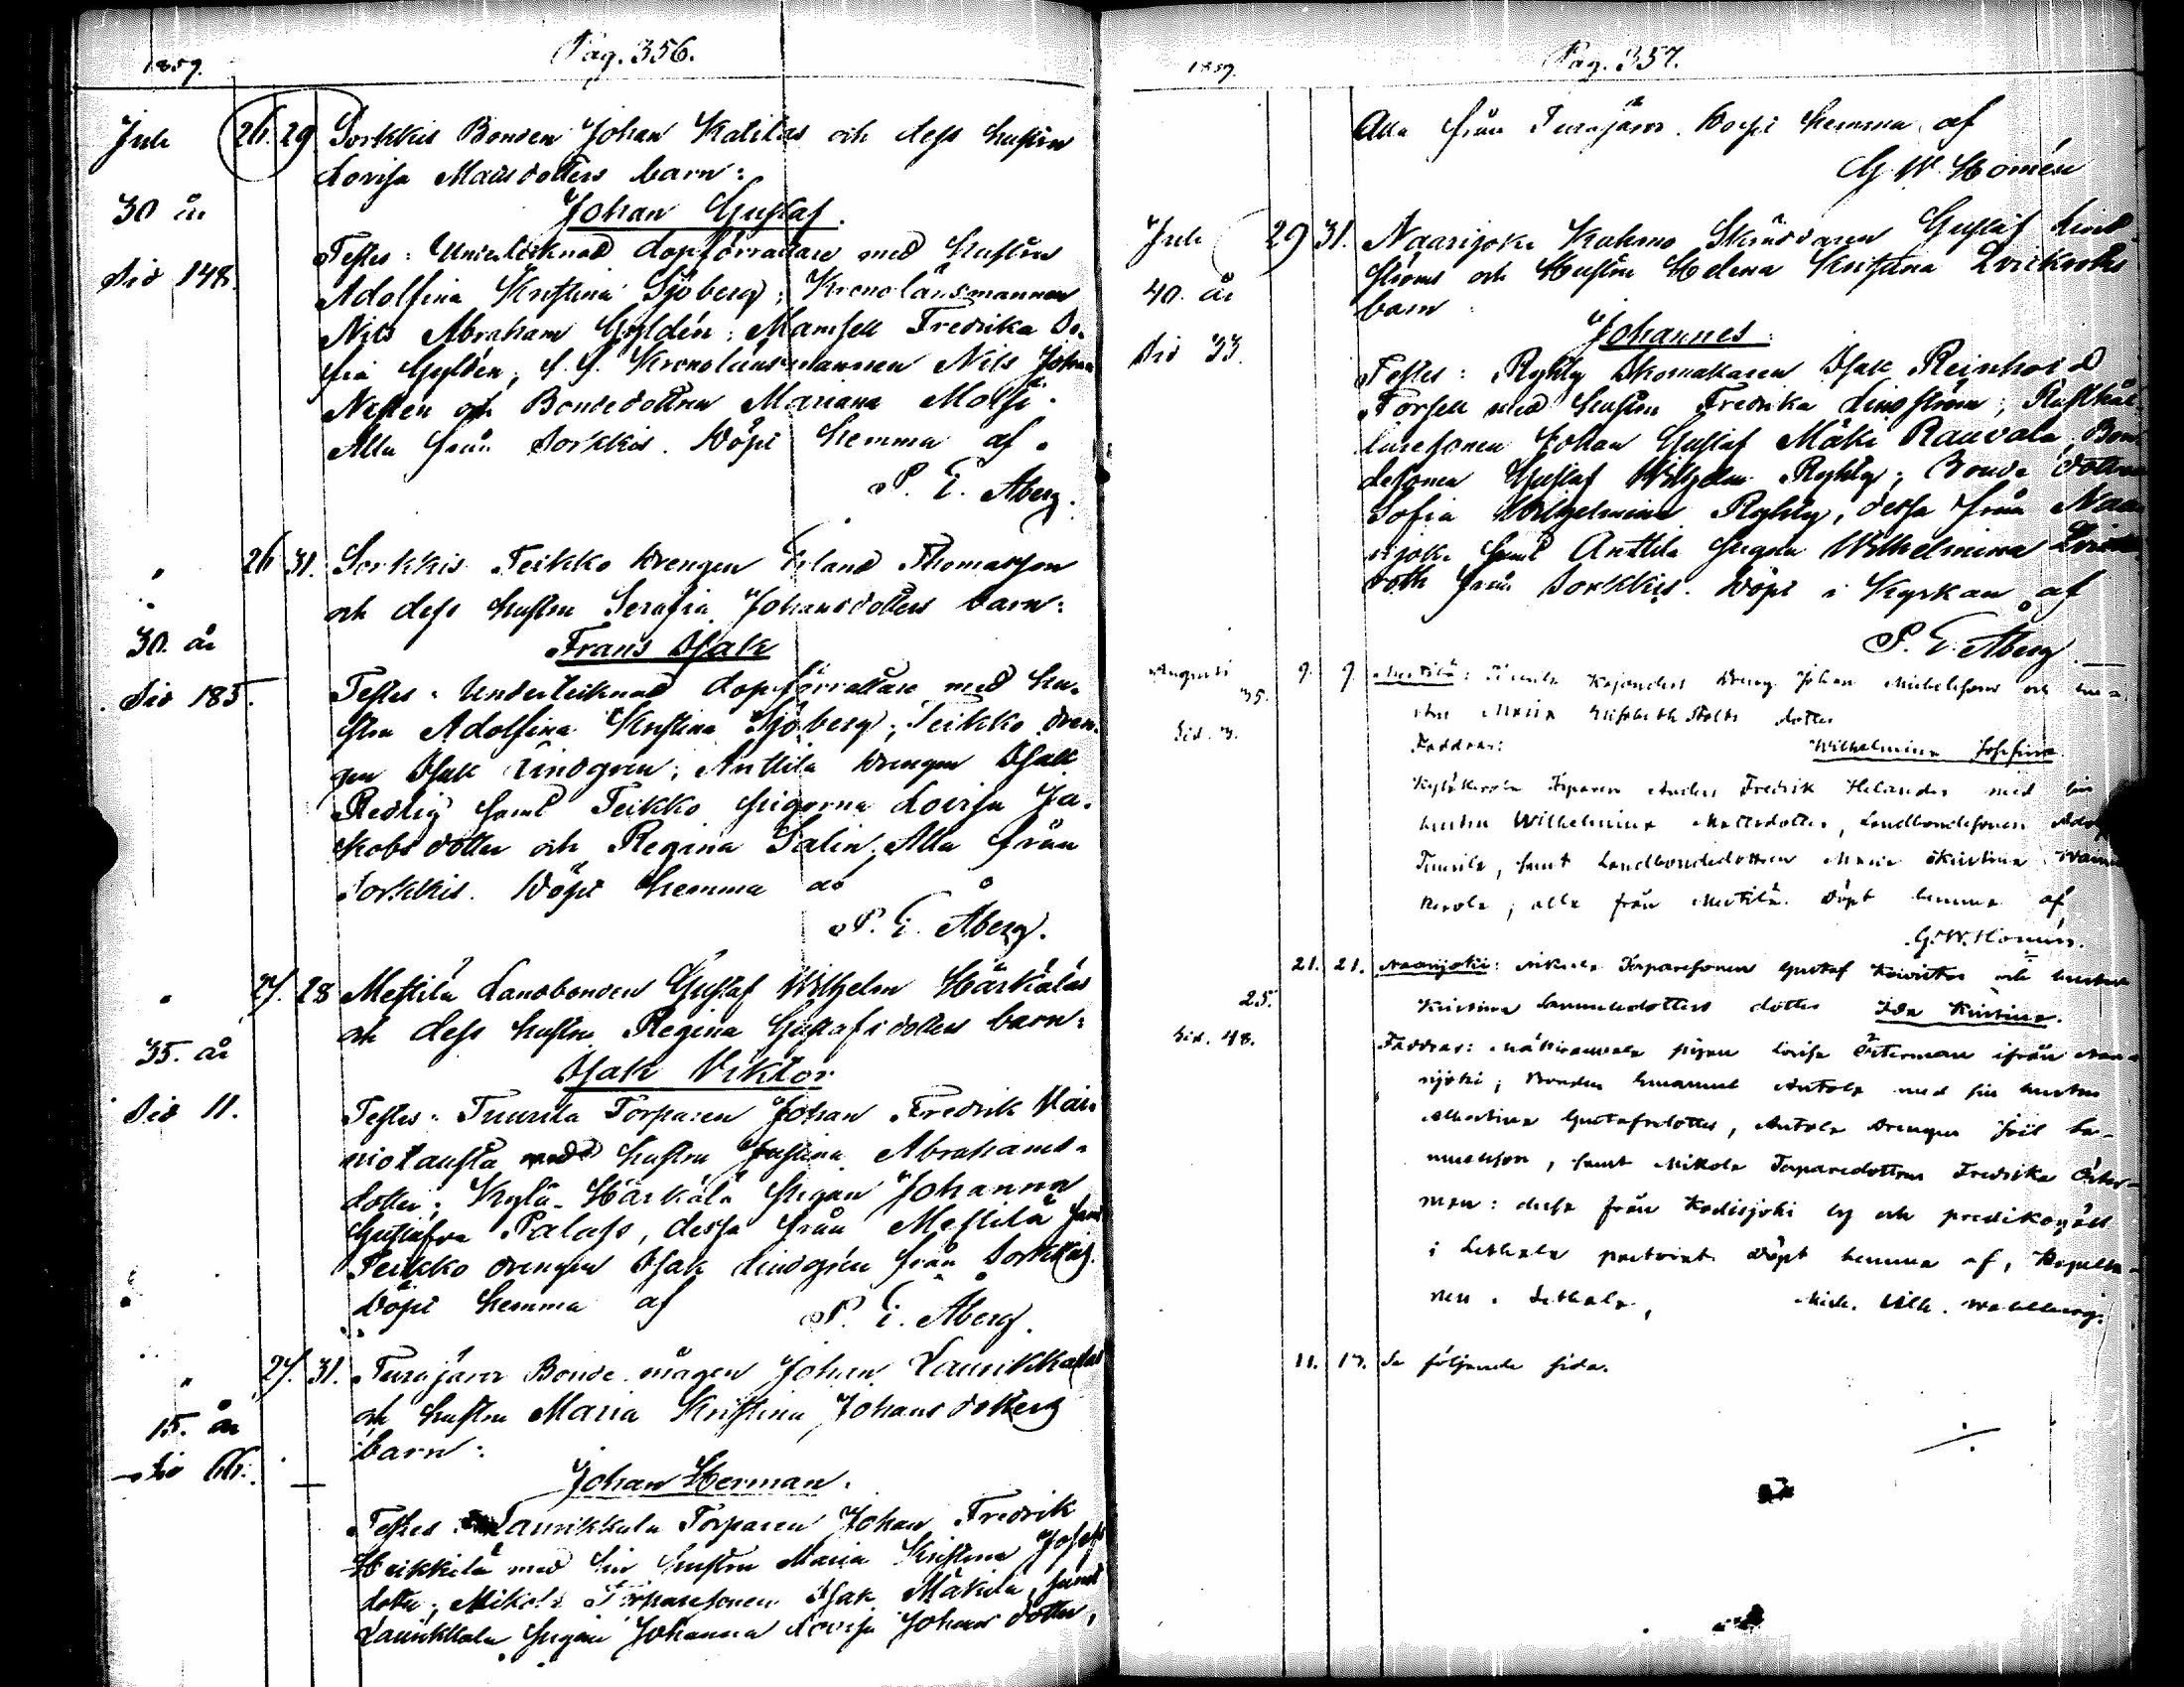 1859.
Pag. 356.
Juli 26. 29 Sorkkis Bonden Johan Katilas och dess hustru
Lovisa Matsdotters barn:
30 år
Johan Gustaf.
Testes: Undertecknad dopförrättare med hustru
Sid 148.
Adolfina Kristina Sjöberg; Kronolänsmannen
Nils Abraham Gyldén; Mamsell Fredrika So-
fia Gyldén, f. d. Kronolänsmannen Nils Johan
och Bondedottren Mariana
Alla från Sorkkis. Döpt hemma af
P. E. Åberg.
" 26 31. Sorkkis Teikko Drengen Erland Thomasson
och dess hustru Serafia Johansdotters barn:
30. år
Frans Isak
Sid 185.
Testes: Underteiknad dopförrättare med hu-
stru Adolfina Kristina Sjöberg; Teikko dren-
gen Isak Lindgren; Anttila drengen Isak
Redlig samt Teikko pigorna Lovisa Ja-
kobsdotter och Regina Salin. Alla från
Sorkkis. Döpt hemma af
P. E. Åberg.
" 27. 28 Mestilä Landbonden Gustaf Wilhelm Härkäläs
och dess hustru Regina Gustafsdotters barn:
35. år
Isak Viktor
Sid 11.
Testes: Tuurila Torparen Johan Fredrik Vai-
niotausta med hustru Justina Abrahams-
dotter; Kylä-Härkälä pigan Johanna
Gustafva Palass, dessa från Mestilä samt
Teikko drengen Isak Lindgrén från Sorkkis.
Döpt hemma af
P. E. Åberg.
" 27. 31. Turajärvi Bonde mågen Johan Laurikkalas
och hustru Maria Kristina Johansdotters
15. år
barn:
Sid 66.
Johan Herman.
Testes: Laurikkala Torparen Johan Fredrik
Heikkilä med sin hustru Maria Kristina Josefs
dotter; Mikola Torparesonen Isak Mäkilä, samt
Laurikkala pigan Johanna Lovisa Johansdotter,
1859.
Pag. 357.
Alla från Turajärvi. Döpt hemma af
G. W. Homén
Juli 29 31. Naarijoki Kahmo Skräddaren Gustaf Lind-
ströms och Hustru Helena Kristina
40. år
barn
Johannes.
Sid 33.
Testes: Ryhty Skomakaren Isak Reinhold
Forsell med hustru Fredrika Lindström; Rusthål-
laresonen Johan Gustaf Mäki Rauvola, Bon-
desonen Gustaf Wilhelm Ryhty; Bonde dottren
Sofia Wilhelmina Ryhty, dessa från Naa-
rijoki samt Anttila pigan Wilhelmina
från Sorkkis. Döpt i Kyrkan af
P. E. Åberg
Augusti 9. 9. Mestilä: Tuurila Dreng Johan Mickelssons och hu-
35.
stru Maria Elisabeth Stolts dotter
Sid. 3.
Faddrar: Wilhelmina Josefina.
Torparen Anders Fredrik Helander med sin
hustru Wilhelmina Mattsdotter, Landbondesonen
Tuurila, samt Landbondedottren Maria Kristina
alla från Mestilä. Döpt hemma af
G. W. Homén.
21. 21. Naarijoki: Mikola Torparesonen Gustaf och hustru
25.
Kristina Samuelsdotters dotter Ida Kristina.
Sid. 48.
Faddrar: Mäkirauvola pigan Lovisa Österman ifrån Naa-
rijoki; Bonden Emanuel Antola med sin hustru
Albertina Gustafsdotter, Antola drengen Joël Sa-
muelsson, samt Mikola Torparedottren Fredrika Öster-
man: dessa från Kodisjoki by och predikogäll
i Letala pastorat. Döpt hemma af, Kapella-
nen i Letala, Mich. Wilh. Wahlberg.
11. 17. Se följande sida.